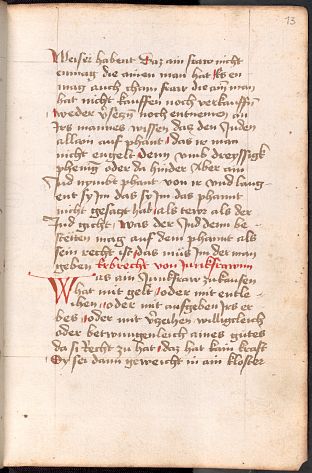 13
Weiser habent Daz ain fraw nicht
enmag die ainen man hat Es en
mag auch chain fraw die ain man
hat nicht kauffen noch verkauffen
weder versetzn noch entnemen an
Irs mannes wissen daz den Juden
allain auf phant Das ir man
nicht engelt denn umb dreyssigk
phenig oder da hinder Aber ain
Jud nymbt phant von ir und laug
ent sy im das sy im das phannt
nicht gesagt hab als tewr als der
Jud gicht Was der Jud denn be
stetten mag auf dem phannt als
sein recht ist das mus im der man
geben Erbrecht von Junkfrawnn
Was ain Junkfraw zu kaufen
hat mit gelt oder mit entle
ihen oder mit aufgeben irs er
bes oder mit verzeihen willigcleich
oder betwungenleich aines gutes
da si Recht zu hat daz hat kain kraft
Sy sei dann geweicht in ain kloster